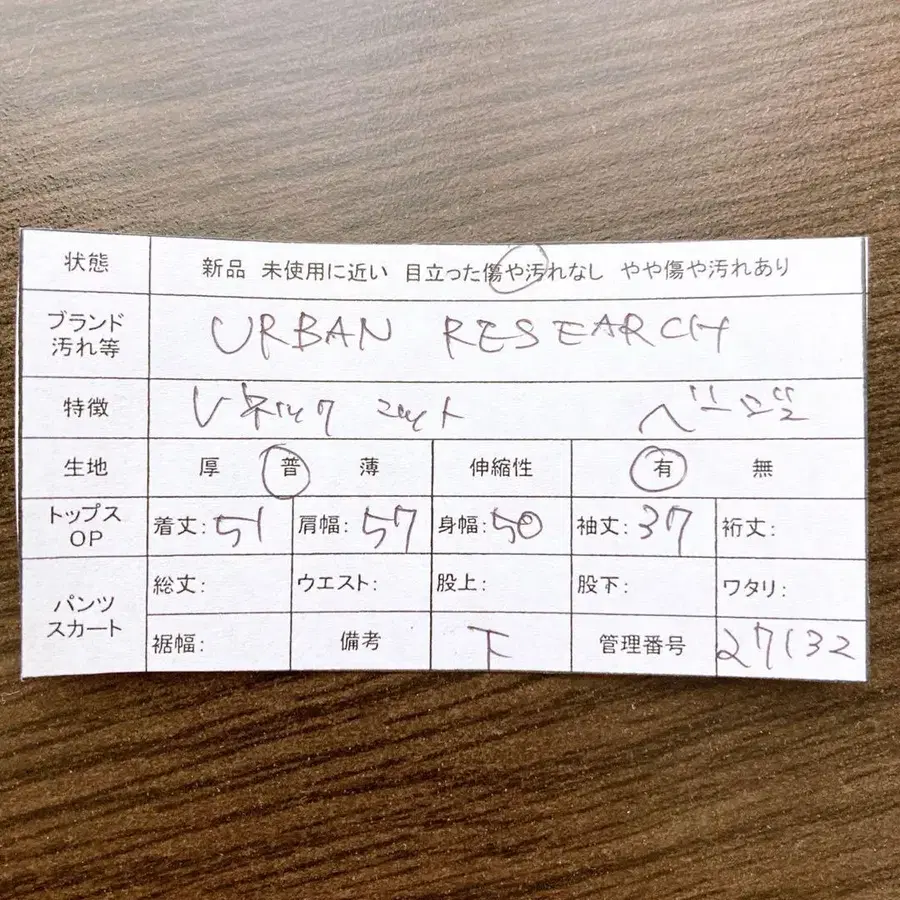 状態 新品 未使用に近い 目立った傷や汚れなし やや傷や汚れあり
ブランド
汚れ等 URBAN RESEARCH
特徴 Vネック ニット ベージュ
生地 厚 普 薄 伸縮性 有 無
トップス
OP 着丈: 51 肩幅: 57 身幅: 50 袖丈: 37 裄丈:
パンツ
スカート 総丈: ウエスト: 股上: 股下: ワタリ:
裾幅: 備考 下 管理番号 27132